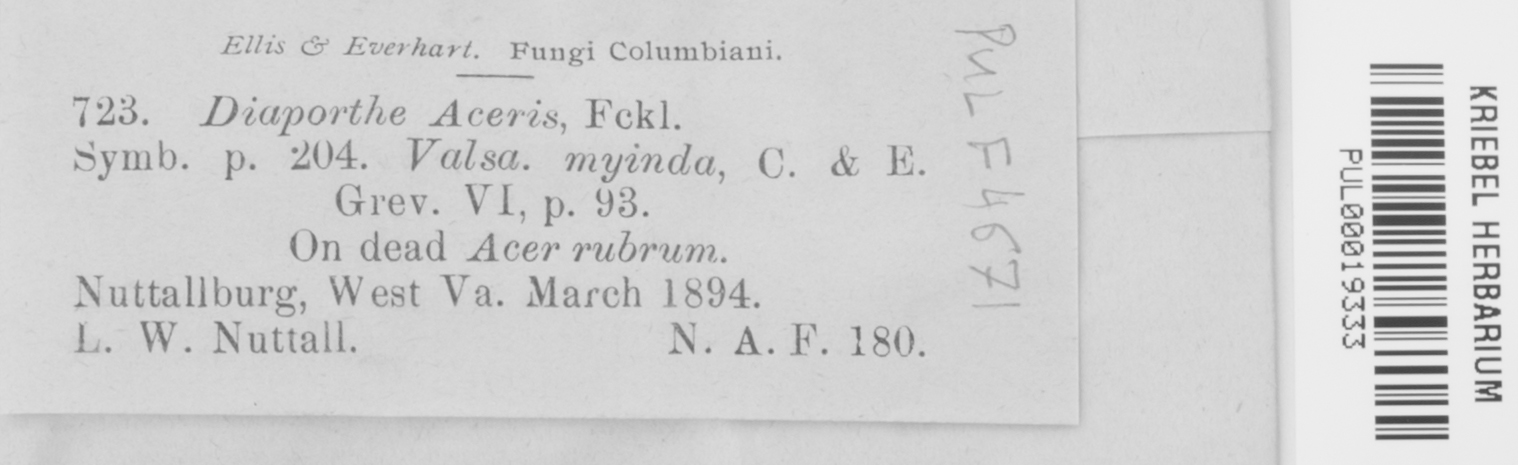 Ellis & Everhart. Fungi Columbiani.
723. Diaporthe Aceris, Fckl.
Symb. p. 204. Valsa. myinda, C. & E.
Grev. VI, p. 93.
On dead Acer rubrum.
Nuttallburg, West Va. March 1894.
L. W. Nuttall. N. A. F. 180.
PUL F4671
PUL00019333
KRIEBEL HERBARIUM